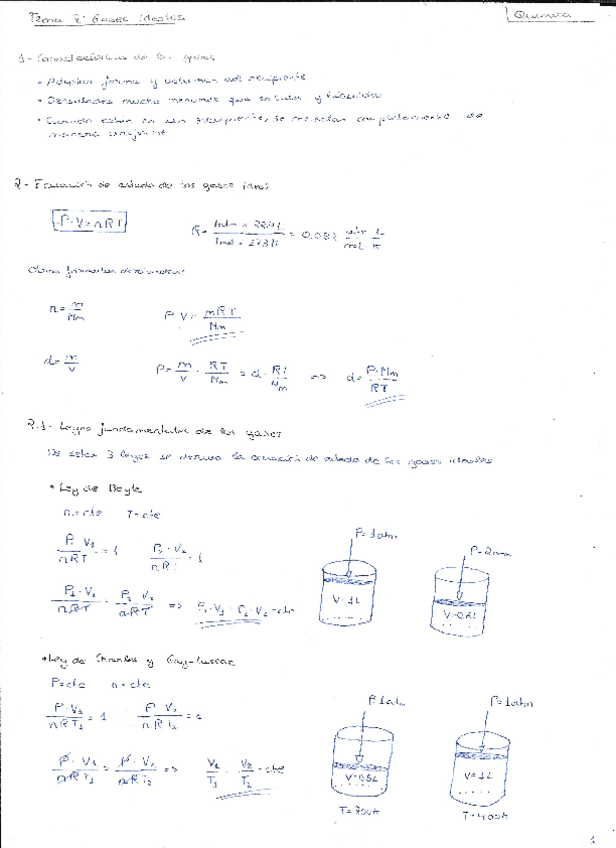 Tema 2: Gases ideales
Química
1- Características de los gases
- Adoptan forma y volumen del recipiente
- Densidades mucho menores que sólidos y líquidos
- Cuando están en un recipiente, se mezclan completamente de
manera uniforme
2- Ecuación de estado de los gases ideal
P·V=nRT
R = 1atm × 22'4L / 1mol × 273K = 0.082 atm L / mol K
Otras fórmulas derivadas:
n = m/Mm
P·V = mRT/Mm
d = m/V
P = m/V · RT/Mm = d · RT/Mm => d = P·Mm/RT
2.1- Leyes fundamentales de los gases
De estas 3 leyes se deriva la ecuación de estado de los gases ideales
• Ley de Boyle
n=cte T=cte
P₁·V₁/nRT = 1 P₂·V₂/nRT = 1
P₁·V₁/nRT = P₂·V₂/nRT => P₁·V₁ = P₂·V₂ = cte
P=1atm
V=1L
V=0.5L
• Ley de Charles y Gay-Lussac
P=cte n=cte
P·V₁/nRT₁ = 1 P·V₂/nRT₂ = 1
P·V₁/nRT₁ = P·V₂/nRT₂ => V₁/T₁ = V₂/T₂ = cte
P=1atm
V=0.5L
P=1atm
V=1L
1